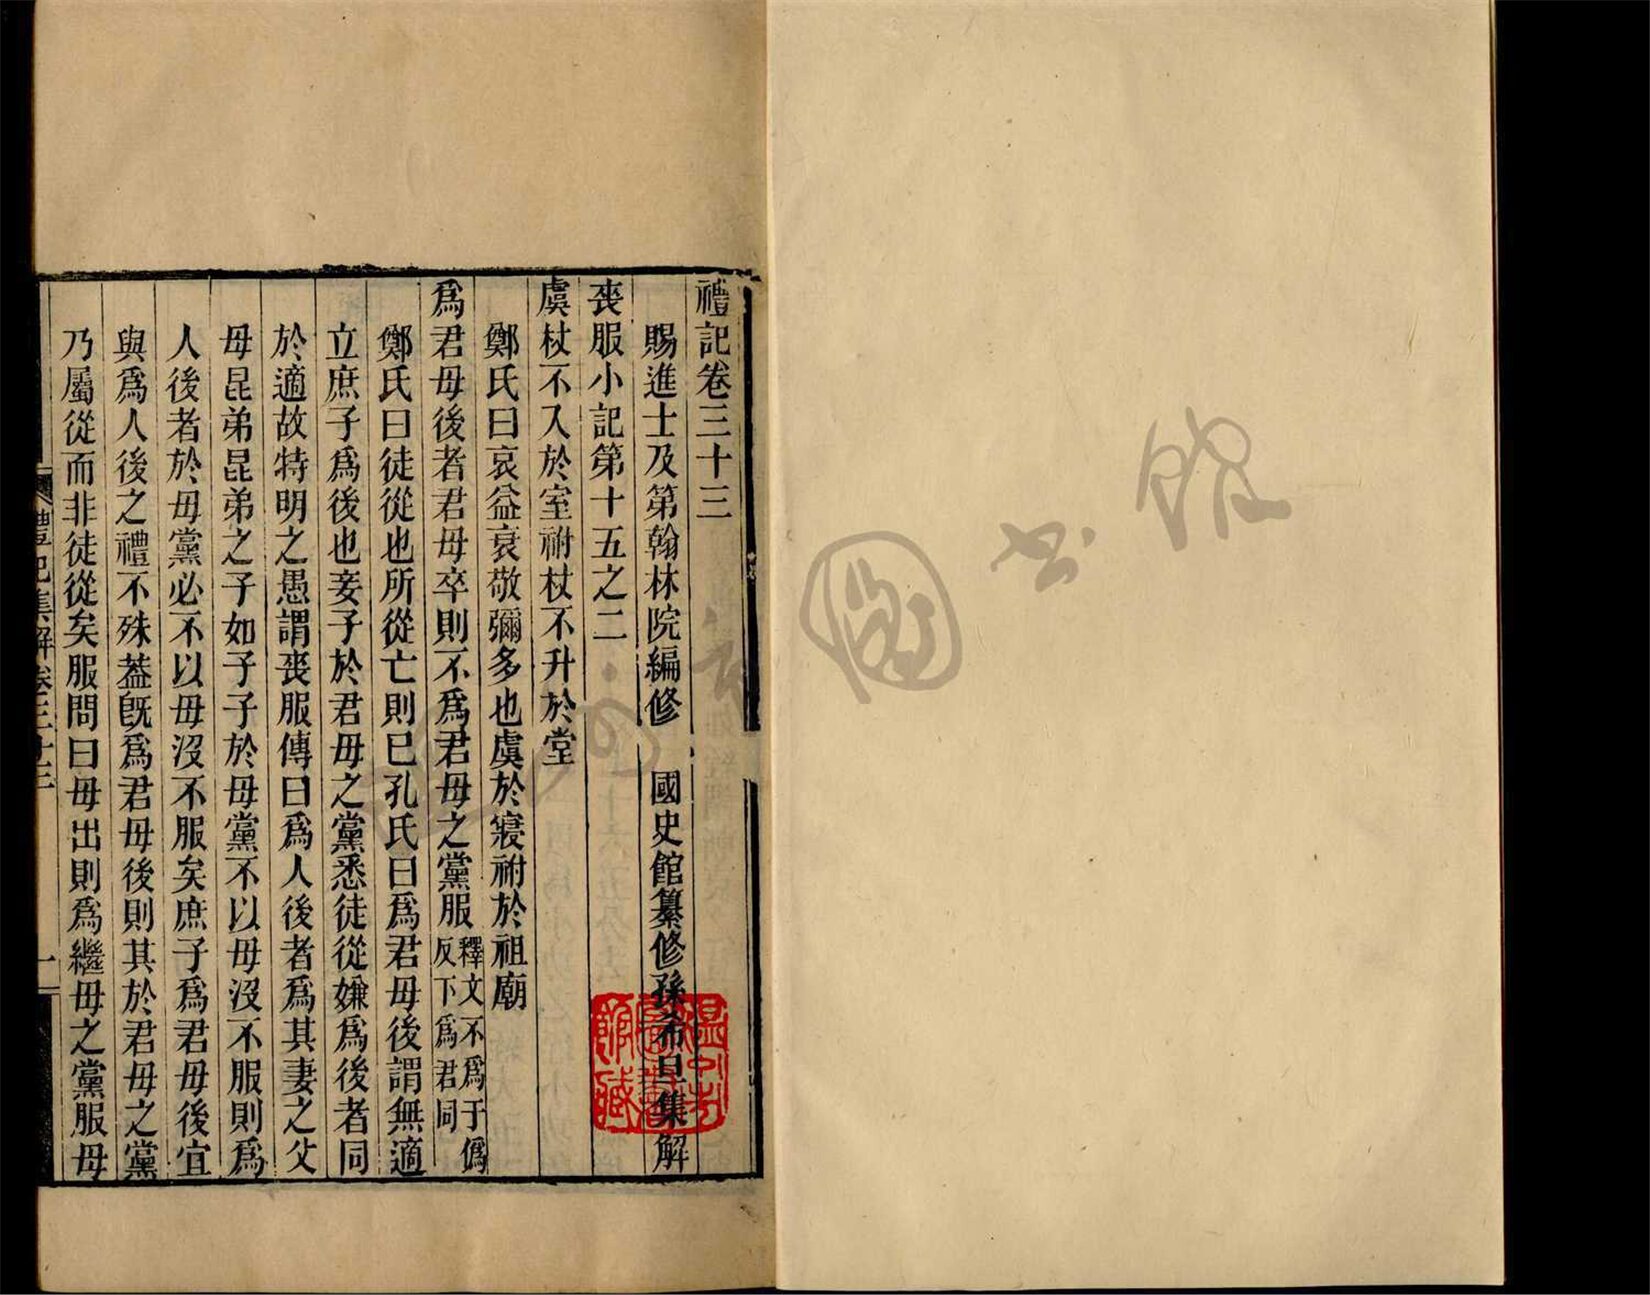 禮記卷三十三
賜進士及第翰林院編修　國史館纂修孫希旦集解
喪服小記第十五之二
虞杖不入於室祔杖不升於堂
鄭氏曰哀益衰敬彌多也虞於寢祔於祖廟
爲君母後者君母卒則不爲君母之黨服釋文不爲于僞反下爲君同
鄭氏曰徒從也所從亡則已孔氏曰爲君母後謂無適
立庶子爲後也妾子於君母之黨悉徒從嫌爲後者同
於適故特明之愚謂喪服傳曰爲人後者爲其妻之父
母昆弟昆弟之子如子子於母黨不以母沒不服則爲
人後者於母黨必不以母沒不服矣庶子爲君母後宜
與爲人後之禮不殊蓋旣爲君母後則其於君母之黨
乃屬從而非徒從矣服問曰母出則爲繼母之黨服母
禮記集解卷三十三
一
圖書館